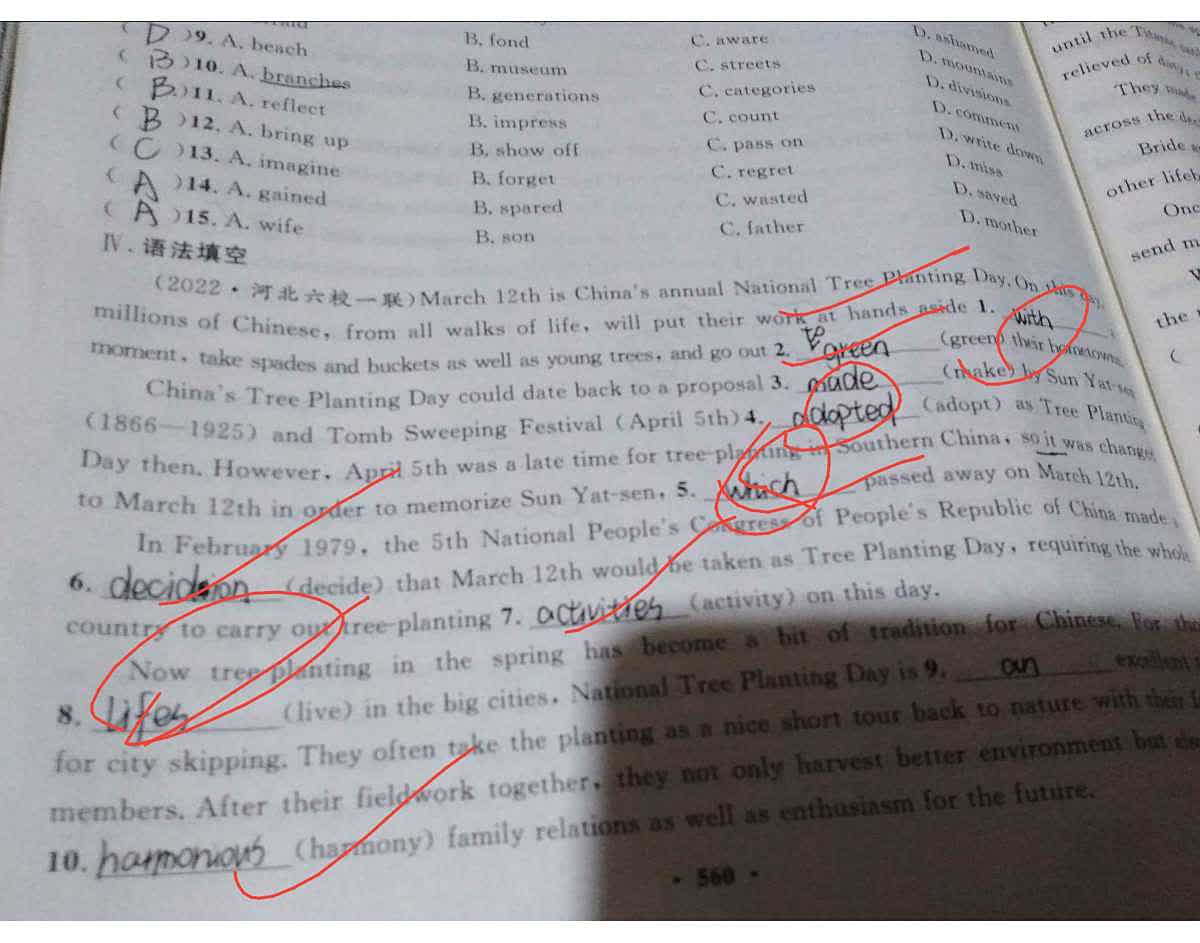 ( D )9. A. beach B. fond C. aware D. ashamed
( B )10. A. branches B. museum C. streets D. mountains
( B )11. A. reflect B. generations C. categories D. divisions
( B )12. A. bring up B. impress C. count D. comment
( C )13. A. imagine B. show off C. pass on D. write down
( A )14. A. gained B. forget C. regret D. miss
( A )15. A. wife B. spared C. wasted D. saved
B. son C. father D. mother
Ⅳ. 语法填空
(2022·河北六校一联)March 12th is China's annual National Tree Planting Day. On this day,
millions of Chinese, from all walks of life, will put their work at hands aside 1. with
moment, take spades and buckets as well as young trees, and go out 2. to green (green) their hometowns.
China's Tree Planting Day could date back to a proposal 3. made (make) by Sun Yat-sen
(1866—1925) and Tomb Sweeping Festival (April 5th) 4. adopted (adopt) as Tree Planting
Day then. However, April 5th was a late time for tree-planting in Southern China, so it was changed
to March 12th in order to memorize Sun Yat-sen, 5. which passed away on March 12th.
In February 1979, the 5th National People's Congress of People's Republic of China made
6. decidsion (decide) that March 12th would be taken as Tree Planting Day, requiring the whole
country to carry out tree-planting 7. activities (activity) on this day.
Now tree-planting in the spring has become a bit of tradition for Chinese. For
8. lifes (live) in the big cities, National Tree Planting Day is 9. an excellent
for city skipping. They often take the planting as a nice short tour back to nature with their
members. After their fieldwork together, they not only harvest better environment but
10. harmonious (harmony) family relations as well as enthusiasm for the future.
· 560 ·
until the Titanic
relieved of
They made
across the
Bride
other lifeb
Onc
send m
W
the
(